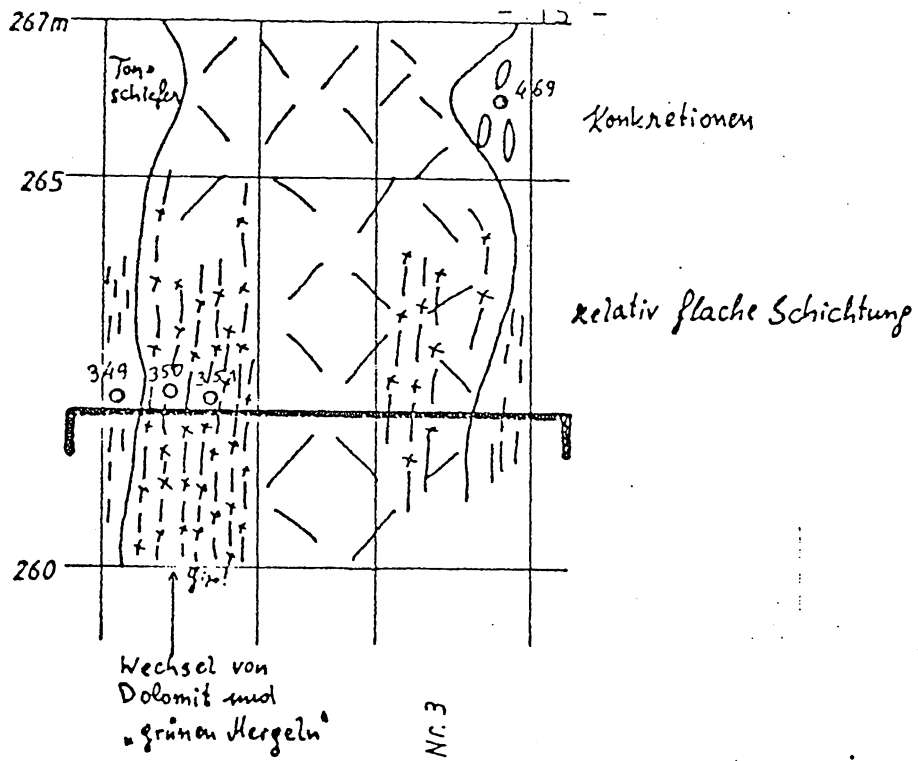 - 12 -
267m
Ton=
schiefer
469
Konkretionen
265
relativ flache Schichtung
349
350
351
260
Gips!
Wechsel von
Dolomit und
„grünen Mergeln“
Nr. 3